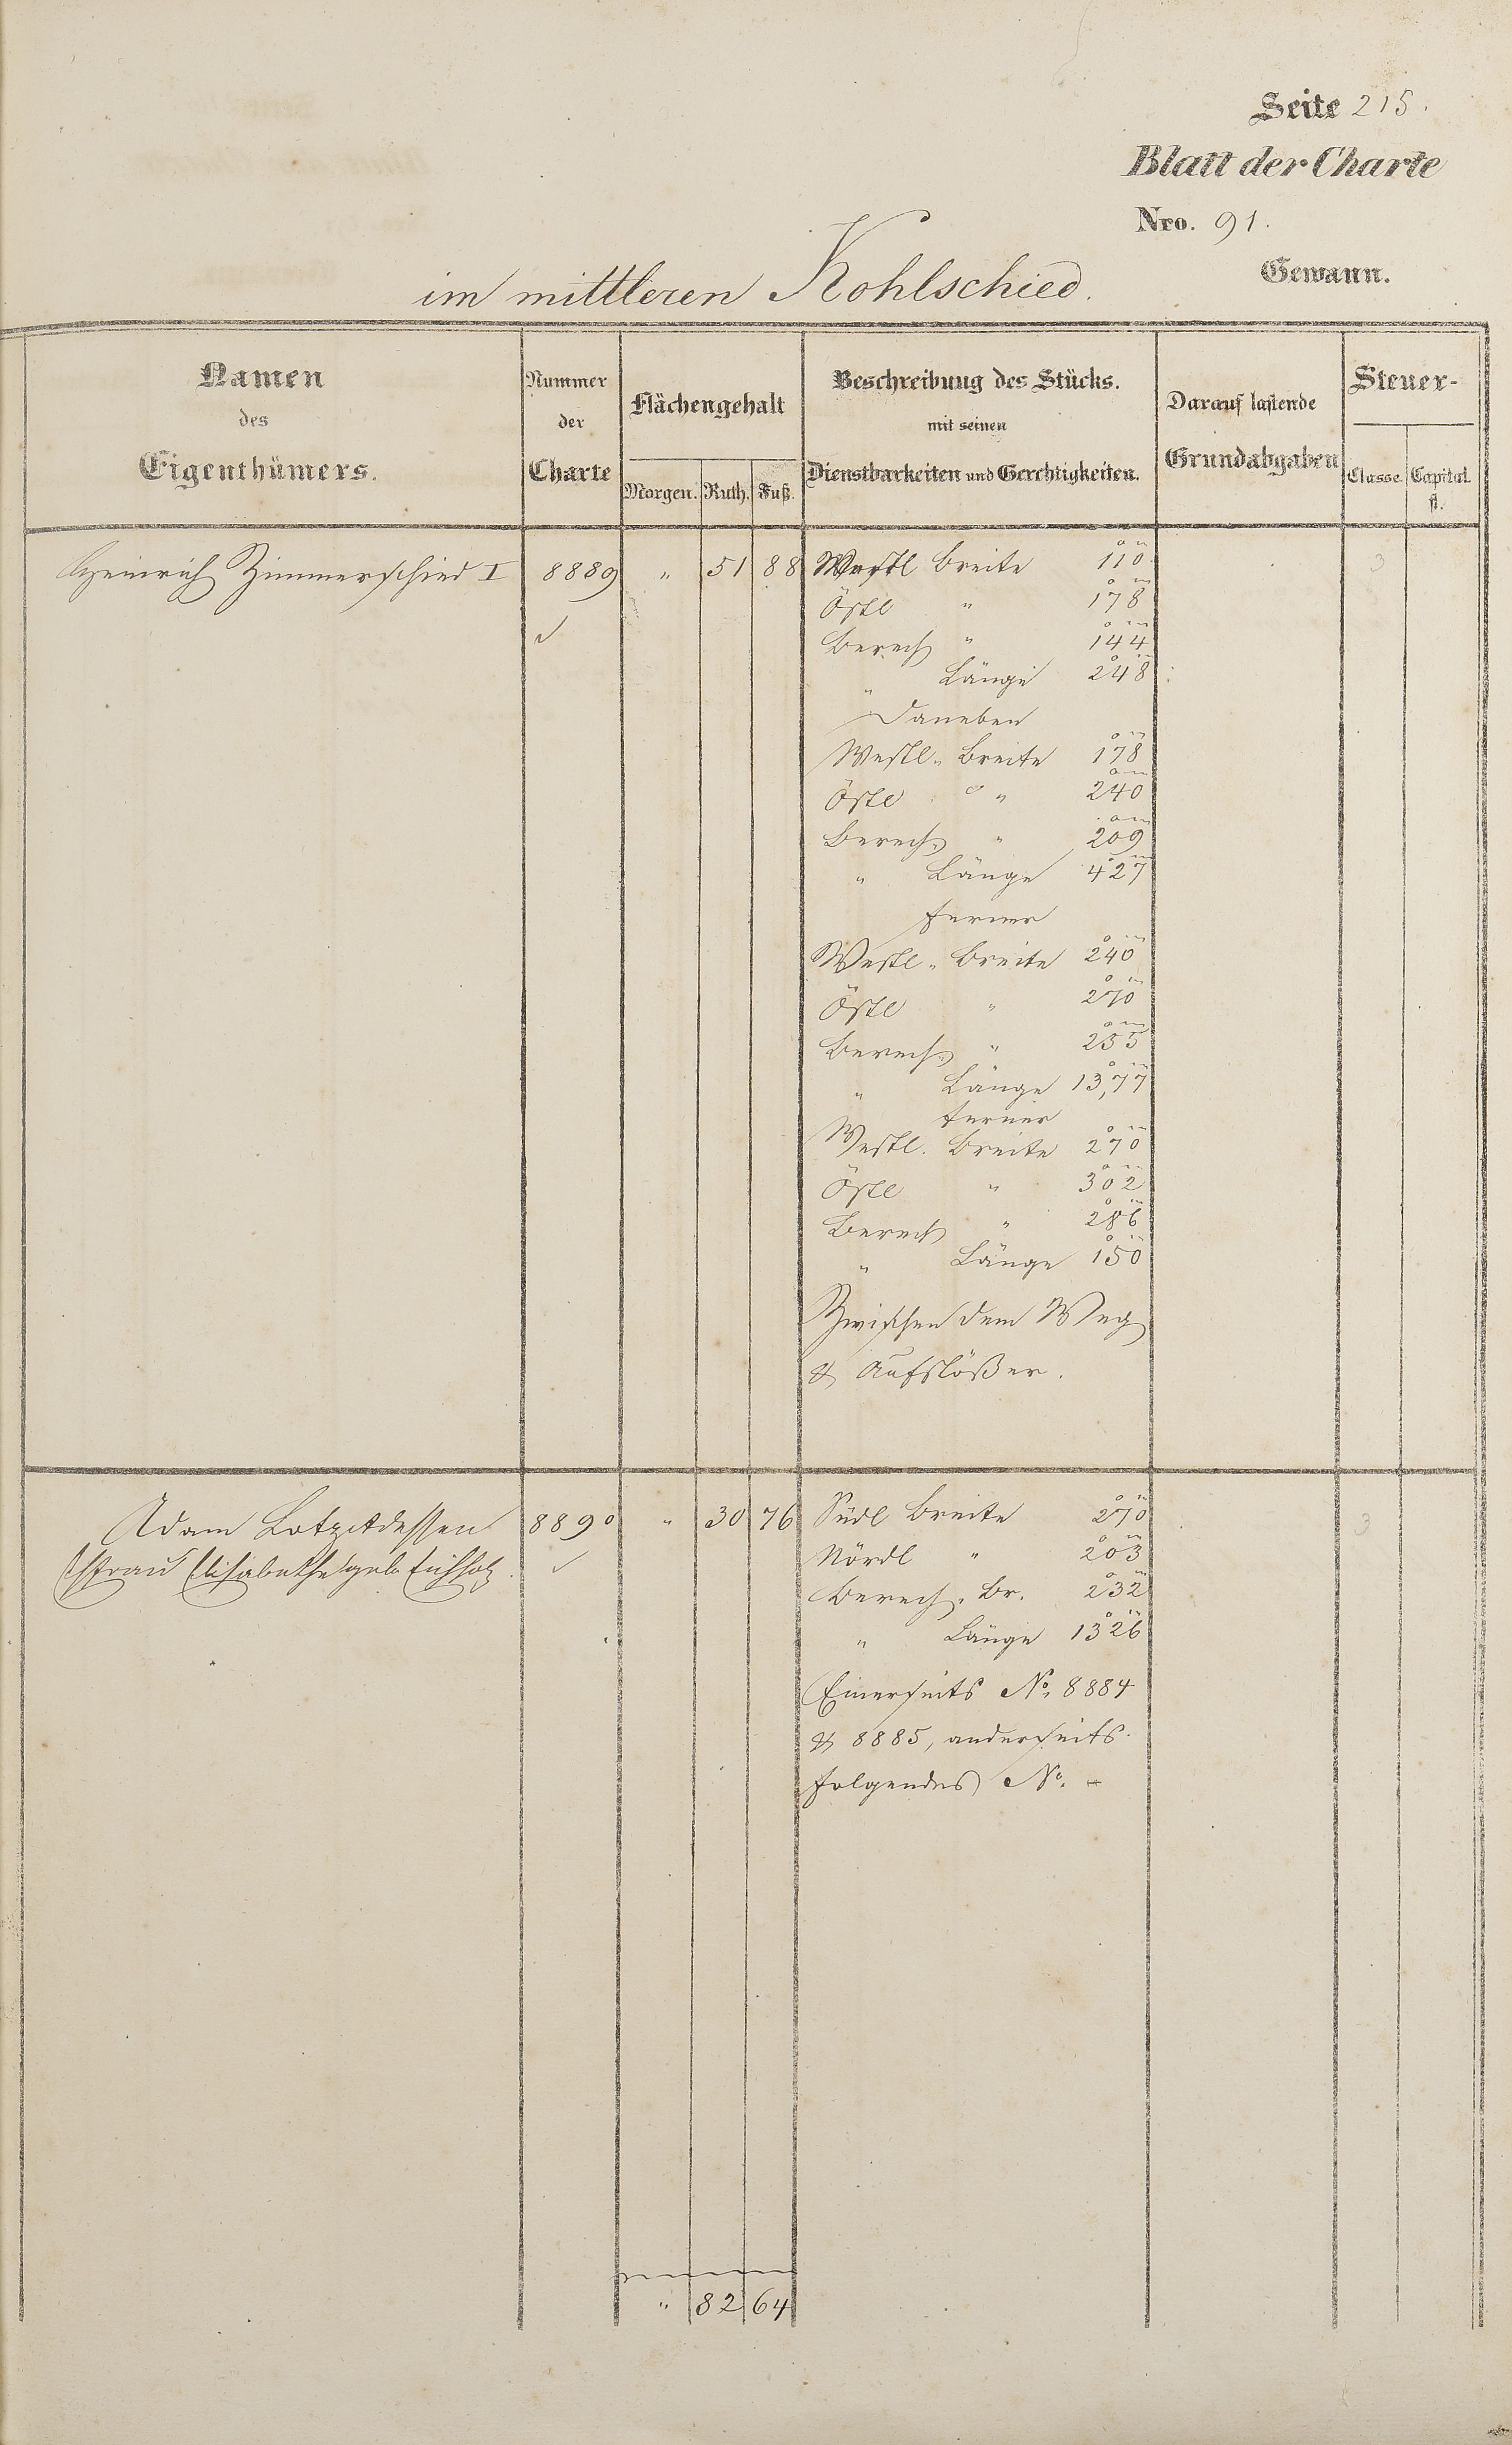 Seite 215.
Blatt der Charte
Nro. 91.
im mittleren Kohlschied.
Gewann.
Namen des Eigenthümers.
Nummer der Charte
Flächengehalt
Morgen. Ruth. Fuß.
Beschreibung des Stücks.
mit seinen
Dienstbarkeiten und Gerechtigkeiten.
Darauf lastende
Grundabgaben
Steuer-
Classe. Capital.
fl.
Heinrich Zimmerschied I 8889 " 51 88 Westl Breite 110 3
Östl " 178
Berech " 144
" Länge 248
Daneben
Westl. Breite 178
Östl " 240
Berech. " 209
" Länge 427
ferner
Westl. Breite 240
Östl " 270
Berech. " 255
" Länge 13,77
ferner
Westl. Breite 270
Östl " 302
Berech " 286
" Länge 150
Zwischen dem Weg
& Aufstößer.
Adam Lotz dessen 8890 " 30 76 Südl Breite 270 3
Ehfrau Elisabethe geb. Nördl " 203
Berech. Br. 232
" Länge 1326
Einerseits No. 8884
& 8885, anderseits
folgendes No.
" 82 64